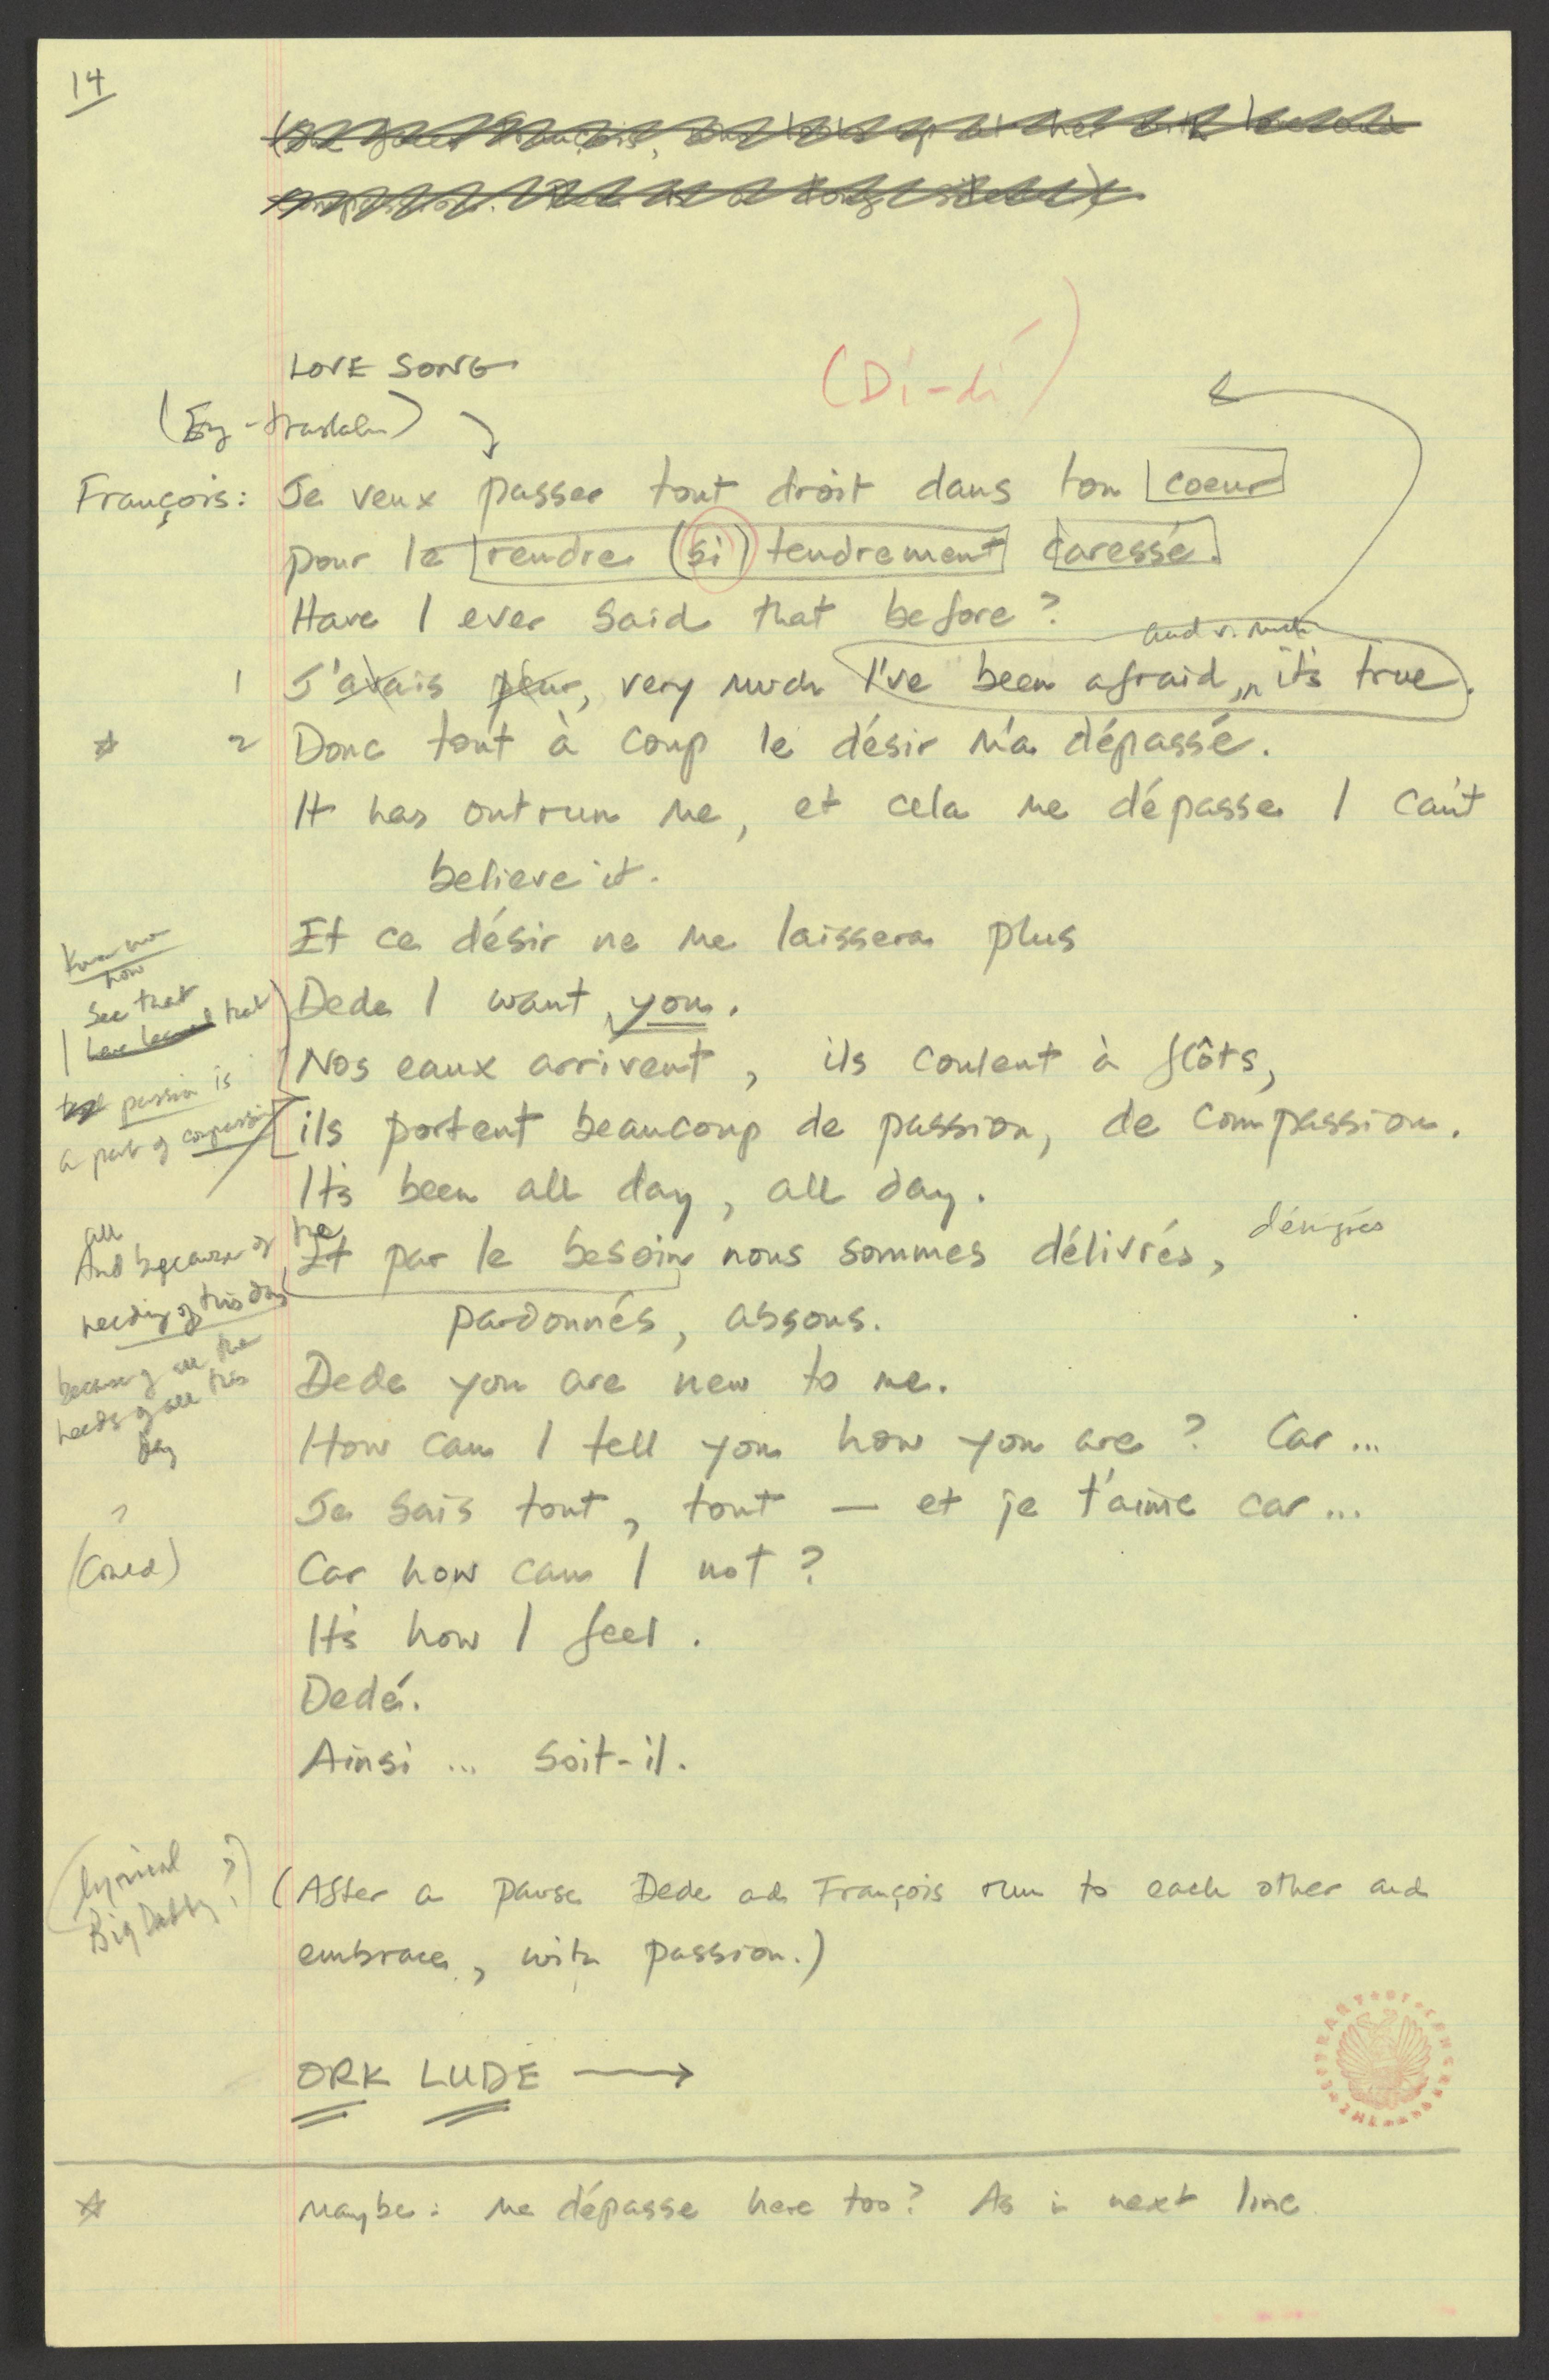 14
LOVE SONG
(Di-di)
François: Je veux passer tout droit dans ton coeur
pour le rendre (si) tendrement caressé.
Have I ever said that before?
and v. much
1 J'avais peur, very much I've been afraid, it's true.
☆ 2 Donc tout à coup le désir m'a dépassé.
It has outrun me, et cela me dépasse I can't
believe it.
Et ce désir ne me laissera plus
now
See that
Dede I want, you.
I have learned that
Nos eaux arrivent, ils coulent à flôts,
passion is
a part of compassion
ils portent beaucoup de passion, de compassion.
It's been all day, all day.
all
And because of the
needing of this day
Et par le besoin nous sommes délivrés,
pardonnés, absous.
because of all the
needs of all this
day
Dede you are new to me.
How can I tell you how you are? Car ...
?
Je sais tout, tout — et je t'aime car ...
Car how can I not?
It's how I feel.
Dedé.
Ainsi ... soit-il.
(lyrical
Big Daddy??)
(After a pause Dede and François run to each other and
embrace, with passion.)
ORK LUDE →
☆ Maybe: me dépasse here too? As in next line